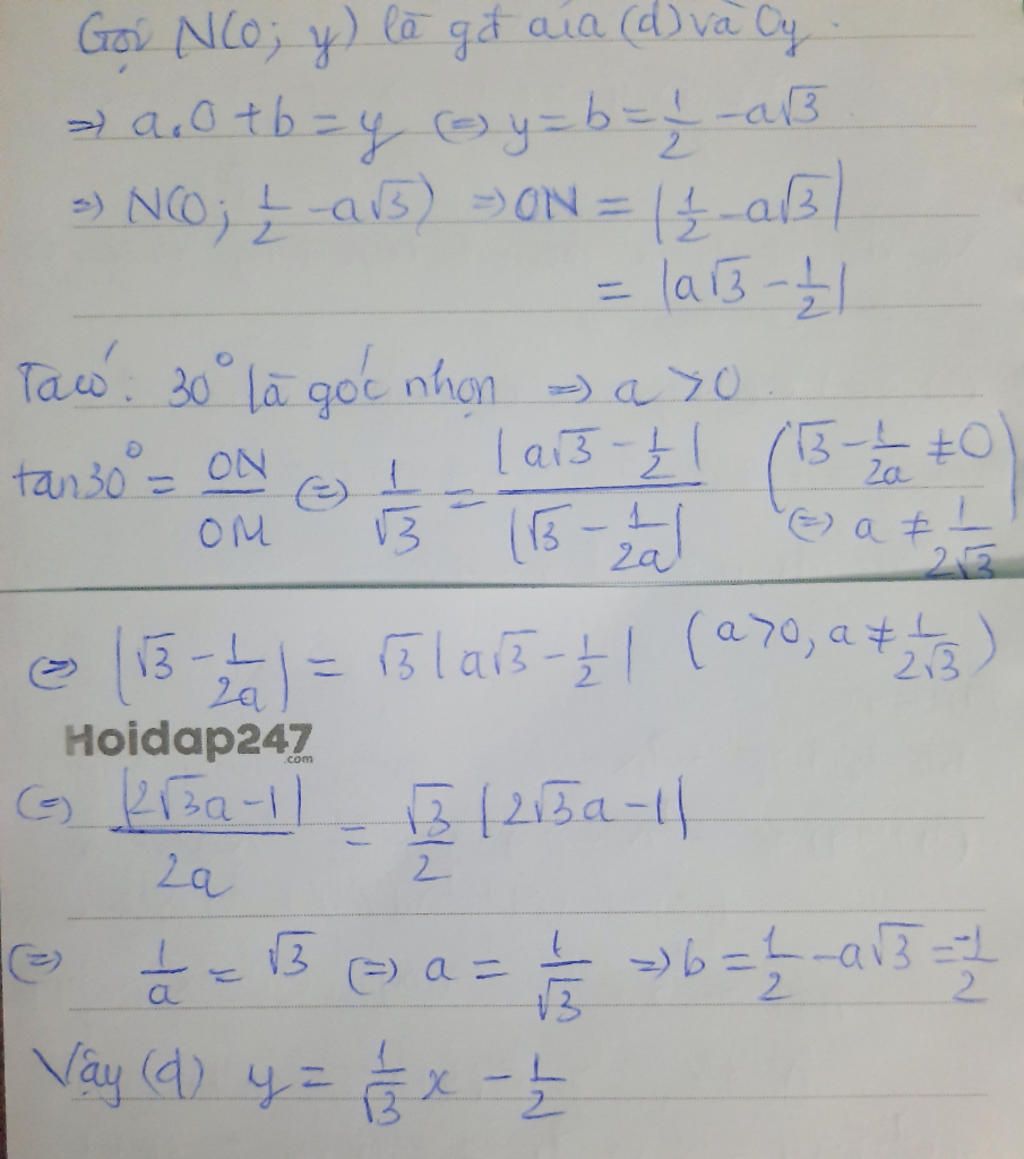 Gọi N(0; y) là gđ của (d) và Oy.
=> a.0 + b = y (=) y = b = 1/2 - a√3
=> N(0; 1/2 - a√3) => ON = |1/2 - a√3|
= |a√3 - 1/2|
Ta có: 30° là góc nhọn => a > 0.
tan30° = ON/OM (=) 1/√3 = |a√3 - 1/2| / |√3 - 1/2a| (√3 - 1/2a ≠ 0
(=) a ≠ 1/2√3)
(=) |√3 - 1/2a| = √3 |a√3 - 1/2| (a>0, a ≠ 1/2√3)
Hoidap247
.com
(=) |2√3a - 1| / 2a = √3/2 |2√3a - 1|
(=) 1/a = √3 (=) a = 1/√3 => b = 1/2 - a√3 = -1/2
Vậy (d) y = 1/√3 x - 1/2